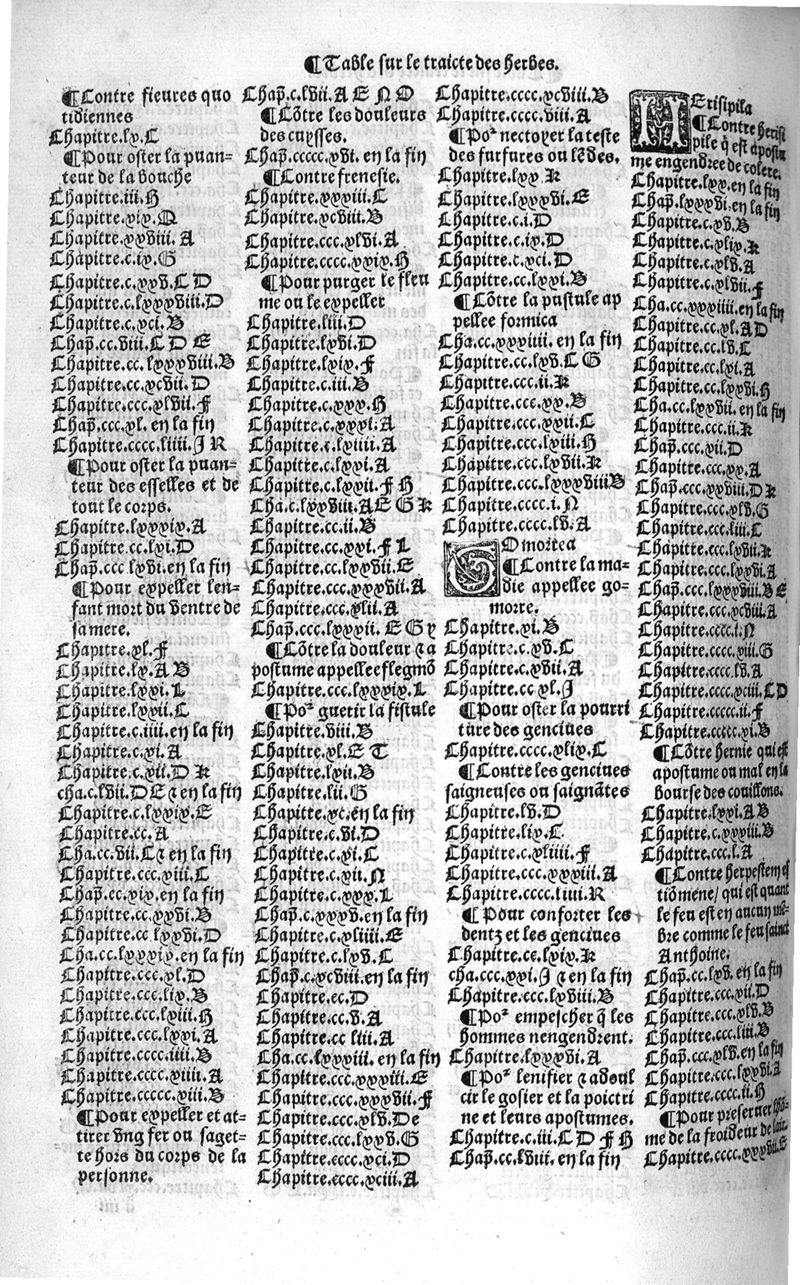 ¶Table sur le traicte des herbes.
¶Contre fieures quo
tidiennes
Chapitre.lx.C
¶Pour oster la puan-
teur de la bouche
Chapitre.iii.H
Chapitre.xix.Q
Chapitre.xxviii.A
Chapitre.c.ix.G
Chapitre.c.xxv.C D
Chapitre.c.lxxxviii.D
Chapitre.c.xci.B
Chap̃.cc.viii.C D E
Chapitre.cc.lxxxviii.B
Chapitre.cc.xcvii.D
Chapitre.ccc.xlvii.F
Chap̃.ccc.xl. en la fin
Chapitre.cccc.liiii.J R
¶Pour oster la puan-
teur des esselles et de
tout le corps.
Chapitre.lxxxix.A
Chapitre.cc.lxi.D
Chap̃.ccc lxvi.en la fin
¶Pour expeller len-
fant mort du ventre de
sa mere.
Chapitre.xl.F
Chapitre.lx.A B
Chapitre.lxxi.L
Chapitre.lxxii.C
Chapitre.c.iiii.en la fin
Chapitre.c.xi.A
Chapitre.c.xii.D K
cha.c.lvii.D E ⁊ en la fin
Chapitre.c.lxxix.E
Chapitre.cc.A
Cha.cc.vii.C ⁊ en la fin
Chapitre.cc.xiii.C
Chap̃.cc.xix.en la fin
Chapitre.cc.xxvi.B
Chapitre.cc lxxvi.D
Cha.cc.lxxxix.en la fin
Chapitre.ccc.xl.D
Chapitre.ccc.lix.B
Chapitre.ccc.lxiii.H
Chapitre.ccc.lxxi.A
Chapitre.cccc.iiii.B
Chapitre.cccc.xiiii.A
Chapitre.ccccc.xiii.B
¶Pour expeller et at-
tirer vng fer ou saget-
te hors du corps de la
personne.
Chap̃.c.lvii.A E N O
¶Cõtre les douleurs
des cuysses.
Chap̃.ccccc.xvi. en la fin
¶Contre frenesie.
Chapitre.xxxiii.C
Chapitre.xcviii.B
Chapitre.ccc.xlvi.A
Chapitre.cccc.xxix.H
¶Pour purger le fleu
me ou le expeller
Chapitre.liii.D
Chapitre.lxvi.D
Chapitre.lxix.F
Chapitre.c.iii.B
Chapitre.c.xxx.H
Chapitre.c.xxxi.A
Chapitre.c.lxiiii.A
Chapitre.c.lxxi.A
Chapitre.c.lxxii.F H
Cha.c.lxxviii.A E G K
Chapitre.cc.ii.B
Chapitre.cc.xxi.F L
Chapitre.cc.lxxvii.E
Chapitre.ccc.xxxvii.A
Chapitre.ccc.xlii.A
Chap̃.ccc.lxxxii. E G y
¶Cõtre la douleur ⁊ a
postume appellee flegmõ
Chapitre.ccc.lxxxix.L
¶Poᷣ guerir la fistule
Chapitre.viii.B
Chapitre.xl.E T
Chapitre.lxii.B
Chapitre.lii.G
Chapitre.xc.en la fin
Chapitre.c.vi.D
Chapitre.c.xi.C
Chapitre.c.xii.N
Chapitre.c.xxx.L
Chap̃.c.xxxv.en la fin
Chapitre.c.xliiii.E
Chapitre.c.lxv.C
Chap̃.c.xcviii.en la fin
Chapitre.cc.D
Chapitre.cc.v.A
Chapitre.cc liii.A
Cha.cc.lxxviii. en la fin
Chapitre.ccc.xxxiii.E
Chapitre.ccc.xxxvii.F
Chapitre.ccc.xlv.De
Chapitre.ccc.lxxv.G
Chapitre.cccc.xci.D
Chapitre.cccc.xciii.A
Chapitre.cccc.xcviii.B
Chapitre.ccccc.viii.A
¶Poᷣ nectoyer la teste
des furfures ou lẽdes.
Chapitre.lxx.K
Chapitre.lxxxvi.E
Chapitre.c.i.D
Chapitre.c.ix.D
Chapitre.c.xci.D
Chapitre.cc.lxxi.B
¶Cõtre la pustule ap
pellee formica
Cha.cc.xxxiiii. en la fin
Chapitre.cc.lxv.C G
Chapitre.ccc.ii.K
Chapitre.ccc.xx.B
Chapitre.ccc.xxii.C
Chapitre.ccc.lxiii.H
Chapitre.ccc.lxvii.K
Chapitre.ccc.lxxxviiiB
Chapitre.cccc.i.N
Chapitre.cccc.lv.A
GOmorrea
¶Contre la ma-
die appellee go-
morre.
Chapitre.xi.B
Chapitre.c.xv.C
Chapitre.c.xvii.A
Chapitre.cc xl.J
¶Pour oster la pourri
ture des genciues
Chapitre.cccc.xlix.C
¶Contre les genciues
saigneuses ou saignãtes
Chapitre.lv.D
Chapitre.lix.C.
Chapitre.c.xliiii.F
Chapitre.ccc.xxviii.A
Chapitre.cccc.liiii.R
¶Pour conforter les
dentz et les genciues
Chapitre.cc.lxix.K
cha.ccc.xxi.J ⁊ en la fin
Chapitre.ccc.lxviii.B
¶Poᷣ empescher q̃ les
hommes nengendrent.
Chapitre.lxxxvi.A
¶Poᷣ lenifier ⁊ adoul
cir le gosier et la poictri
ne et leurs apostumes.
Chapitre.c.iii.C D F H
Chap̃.cc.lviii. en la fin
HErisipila
¶Contre herisi
pile q̃ est apostu
me engendree de colere.
Chapitre.lxx.en la fin
Chap̃.lxxxvi.en la fin
Chapitre.c.xv.B
Chapitre.c.xlix.K
Chapitre.c.xlv.A
Chapitre.c.xlvii.F
Cha.cc.xxxiiii.en la fin
Chapitre.cc.xl.A D
Chapitre.cc.lv.C
Chapitre.cc.lxi.A
Chapitre.cc.lxxvi.H
Cha.cc.lxxvii.en la fin
Chapitre.ccc.ii.K
Chap̃.ccc.xii.D
Chapitre.ccc.xx.A
Chap̃.ccc.xxviii.D K
Chapitre.ccc.xlv.G
Chapitre.ccc.liii.C
Chapitre.ccc.lxvii.K
Chapitre.ccc.lxxi.A
Chap̃.ccc.lxxxviii.B E
Chapitre.ccc.xcviii.A
Chapitre.cccc.i.N
Chapitre.cccc.xiii.G
Chapitre.cccc.lv.A
Chapitre.cccc.xciii.C D
Chapitre.ccccc.ii.F
Chapitre.ccccc.xi.B
¶Cõtre hernie qui est
apostume ou mal en la
bourse des couillons.
Chapitre.lxxi.A B
Chapitre.c.xxxiii.B
Chapitre.ccc.l.A
¶Contre herpestem es
tiõmene/ qui est quant
le feu est en aucun mẽ-
bre comme le feu sainct
Anthoine.
Chap̃.cc.lxv.en la fin
Chapitre.ccc.xii.D
Chapitre.ccc.xlv.B
Chapitre.ccc.liii.B
Chap̃.ccc.xlv.en la fin
Chapitre.ccc.lxxvi.A
Chapitre.cccc.ii.H
¶Pour preseruer lhõ-
me de la froideur de
Chapitre.cccc.xxxviii.E